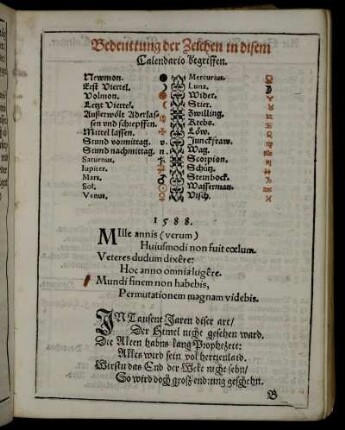 Bedeuttung der Zeichen in disem
Calendario begriffen.
Newmon. ● Mercurius. ☿
Erst Viertel. ☽ Luna. ☽
Volmon. Wider. ♈
Letzt Viertel. ☾ Stier. ♉
Ausserwölt Aderlaß- Zwilling. ♊
sen vnd schiepffen. Krebs. ♋
Mittel lassen. Löw. ♌
Stund vormittag. v. Junckfraw. ♍
Stund nachmittag. n. Wag. ♎
Saturnus. ♄ Scorpion. ♏
Iupiter. ♃ Schütz. ♐
Mars. ♂ Steinbock. ♑
Sol. ☉ Wasserman. ♒
Venus. ♀ Visch. ♓
1588.
Mille annis (verum)
Huiusmodi non fuit cœlum.
Veteres dudum dixêre:
Hoc anno omnia lugêre.
Mundi finem non habebis,
Permutationem magnam videbis.
IN Tausent Jaren diser art/
Der Himel nicht gesehen ward.
Die Alten habns lang Prophezeit:
Alles wird sein vol hertzenlaid.
Wirstu das End der Welt nicht sehn/
So wird doch groß endrung geschehn.
B